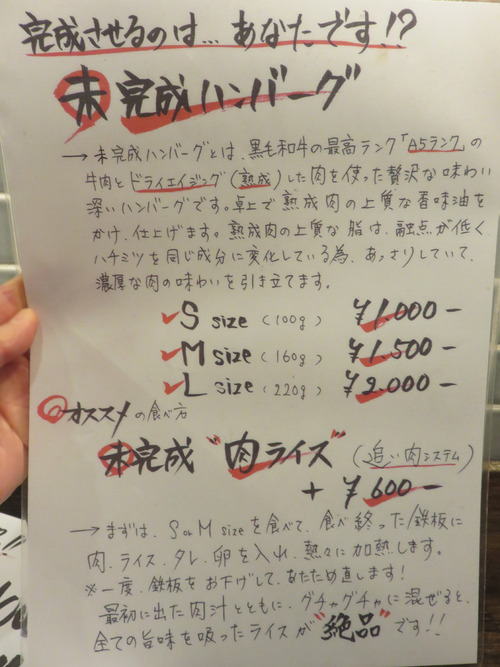 完成させるのは…あなたです!?
未完成ハンバーグ
→未完成ハンバーグとは、黒毛和牛の最高ランク「A5ランク」の
牛肉とドライエイジング(熟成)した肉を使った贅沢な味わい
深いハンバーグです。卓上で熟成肉の上質な香味油を
かけ、仕上げます。熟成肉の上質な脂は、融点が低く
ハチミツを同じ成分に変化している為、あっさりしていて、
濃厚な肉の味わいを引き立てます。
✓S size (100g) ¥1.000-
✓M size (160g) ¥1.500-
✓L size (220g) ¥2.000-
◎オススメの食べ方
未完成"肉ライス"(追い肉システム)
+ ¥600-
→まずは、S or M sizeを食べて、食べ終った鉄板に
肉、ライス、タレ、卵を入れ、熱々に加熱します。
※一度、鉄板をお下げして、あたため直します!
最初に出た肉汁とともに、グチャグチャに混ぜると、
全ての旨味を吸ったライスが"絶品"です!!